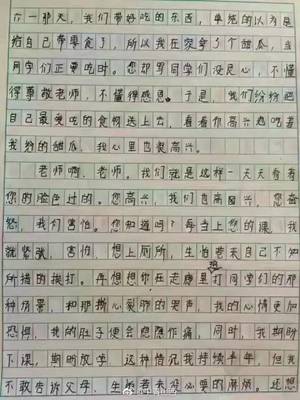 六一那天，我们带好吃的东西，单纯的以为是
给自己带零食了，所以我在家拿了个甜瓜，当
同学们正要吃时。您却骂同学们没良心，不懂
得尊敬老师，不懂得感恩。于是，我们纷纷把
自己最爱吃的食物送上去，看着你高兴地吃着
我给的甜瓜，我心里也挺高兴。
老师啊，老师。我们就是这样一天天看着
您的脸色过的。您高兴，我们也高兴，您奋
怒，我们害怕。您知道吗？每当上您的课，我
就紧张，害怕，想上厕所，生怕若来自己不知
所措的挨打。再想想你在走廊里打同学们的那
种情景，和那撕心裂肺的哭声，我的心情更加
恐惧，我的肚子便会隐隐作痛，同时，我期盼
下课，期盼放学，这种情况我持续半年，但我
不敢告诉父母，生怕若来没必要的麻烦。还想